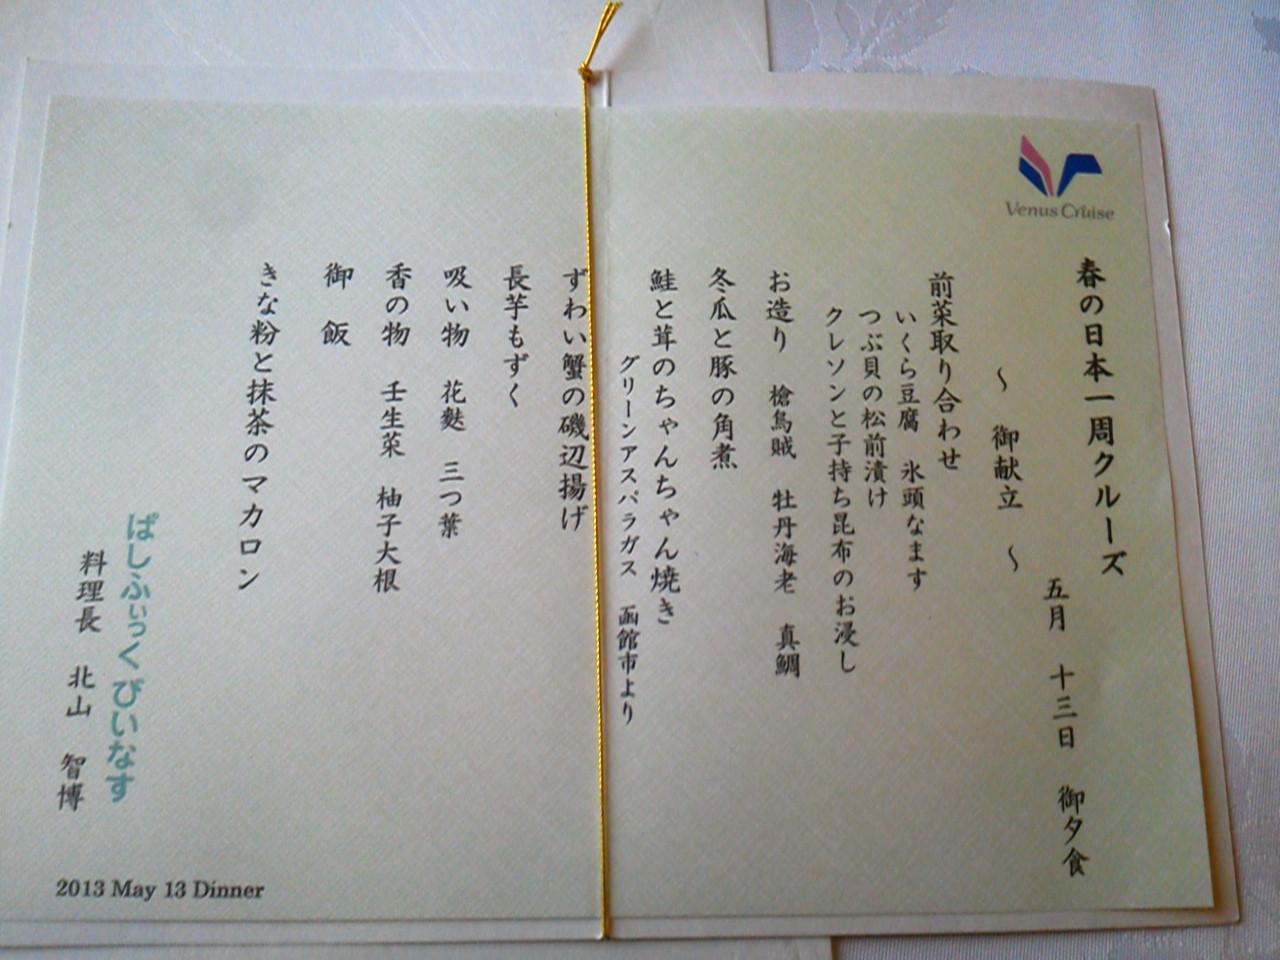 Venus Cruise
春の日本一周クルーズ
五月 十三日 御夕食
〜 御献立 〜
前菜取り合わせ
いくら豆腐 氷頭なます
つぶ貝の松前漬け
クレソンと子持ち昆布のお浸し
お造り 槍烏賊 牡丹海老 真鯛
冬瓜と豚の角煮
鮭と茸のちゃんちゃん焼き
グリーンアスパラガス 函館市より
ずわい蟹の磯辺揚げ
長芋もずく
吸い物 花麩 三つ葉
香の物 壬生菜 柚子大根
御 飯
きな粉と抹茶のマカロン
ぱしふぃっく びいなす
料理長 北山 智博
2013 May 13 Dinner